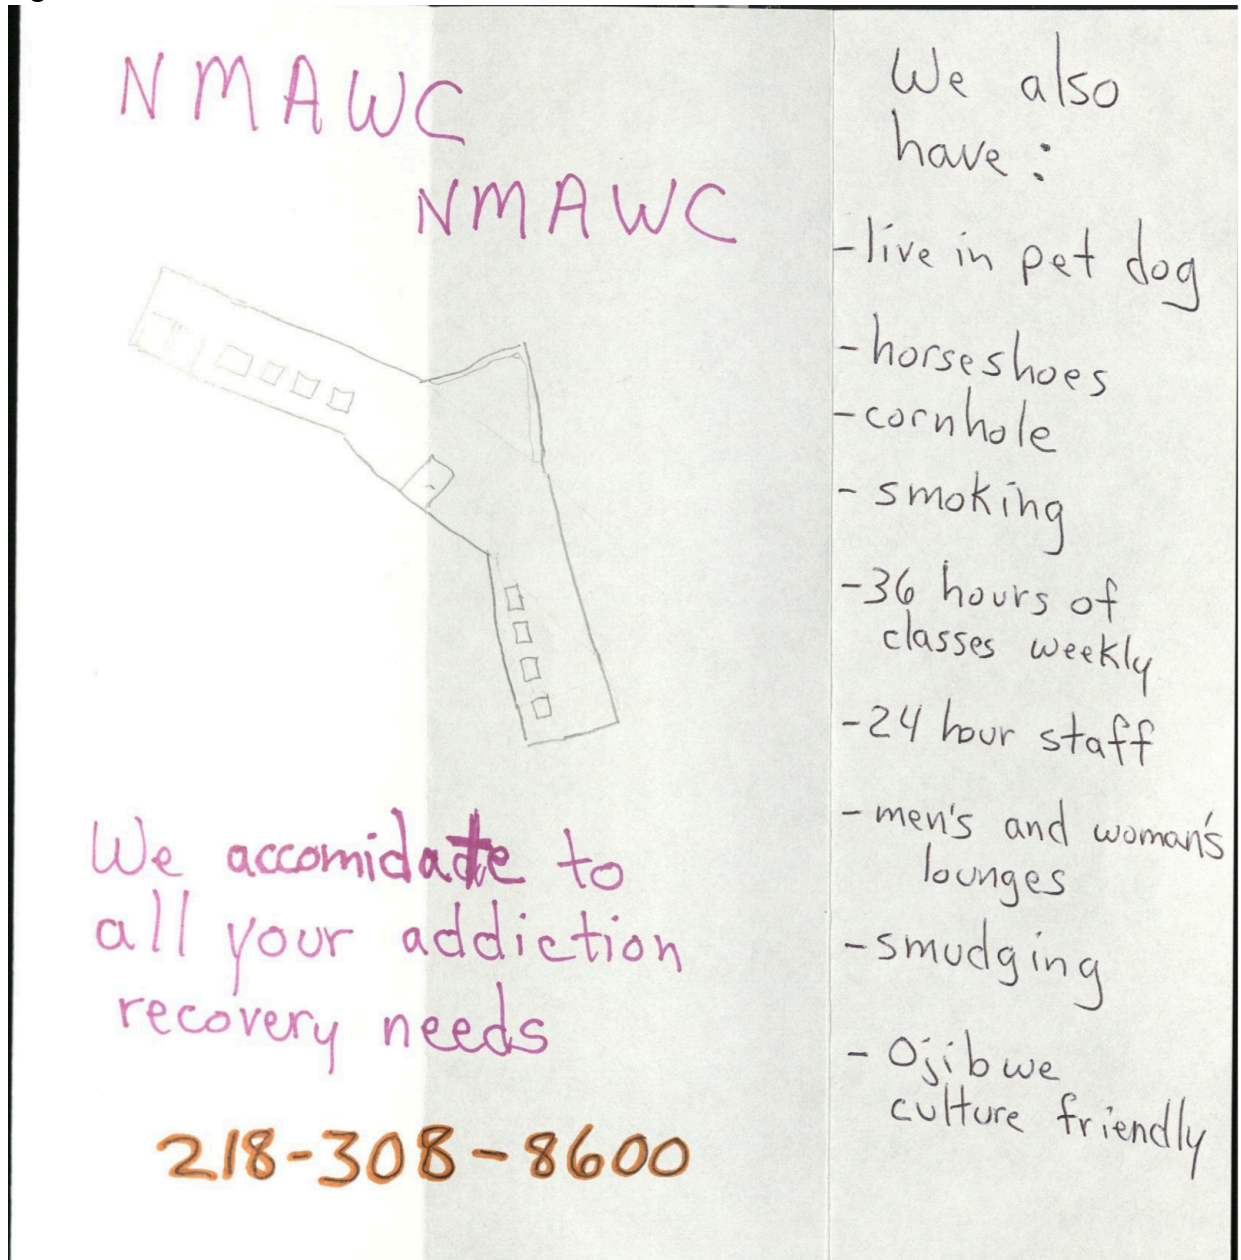 NMAWC
NMAWC
We accomidate to
all your addiction
recovery needs
218-308-8600
We also
have:
-live in pet dog
-horseshoes
-cornhole
- smoking
-36 hours of
classes weekly
-24 hour staff
-men's and woman's
lounges
-smudging
- Ojibwe
culture friendly